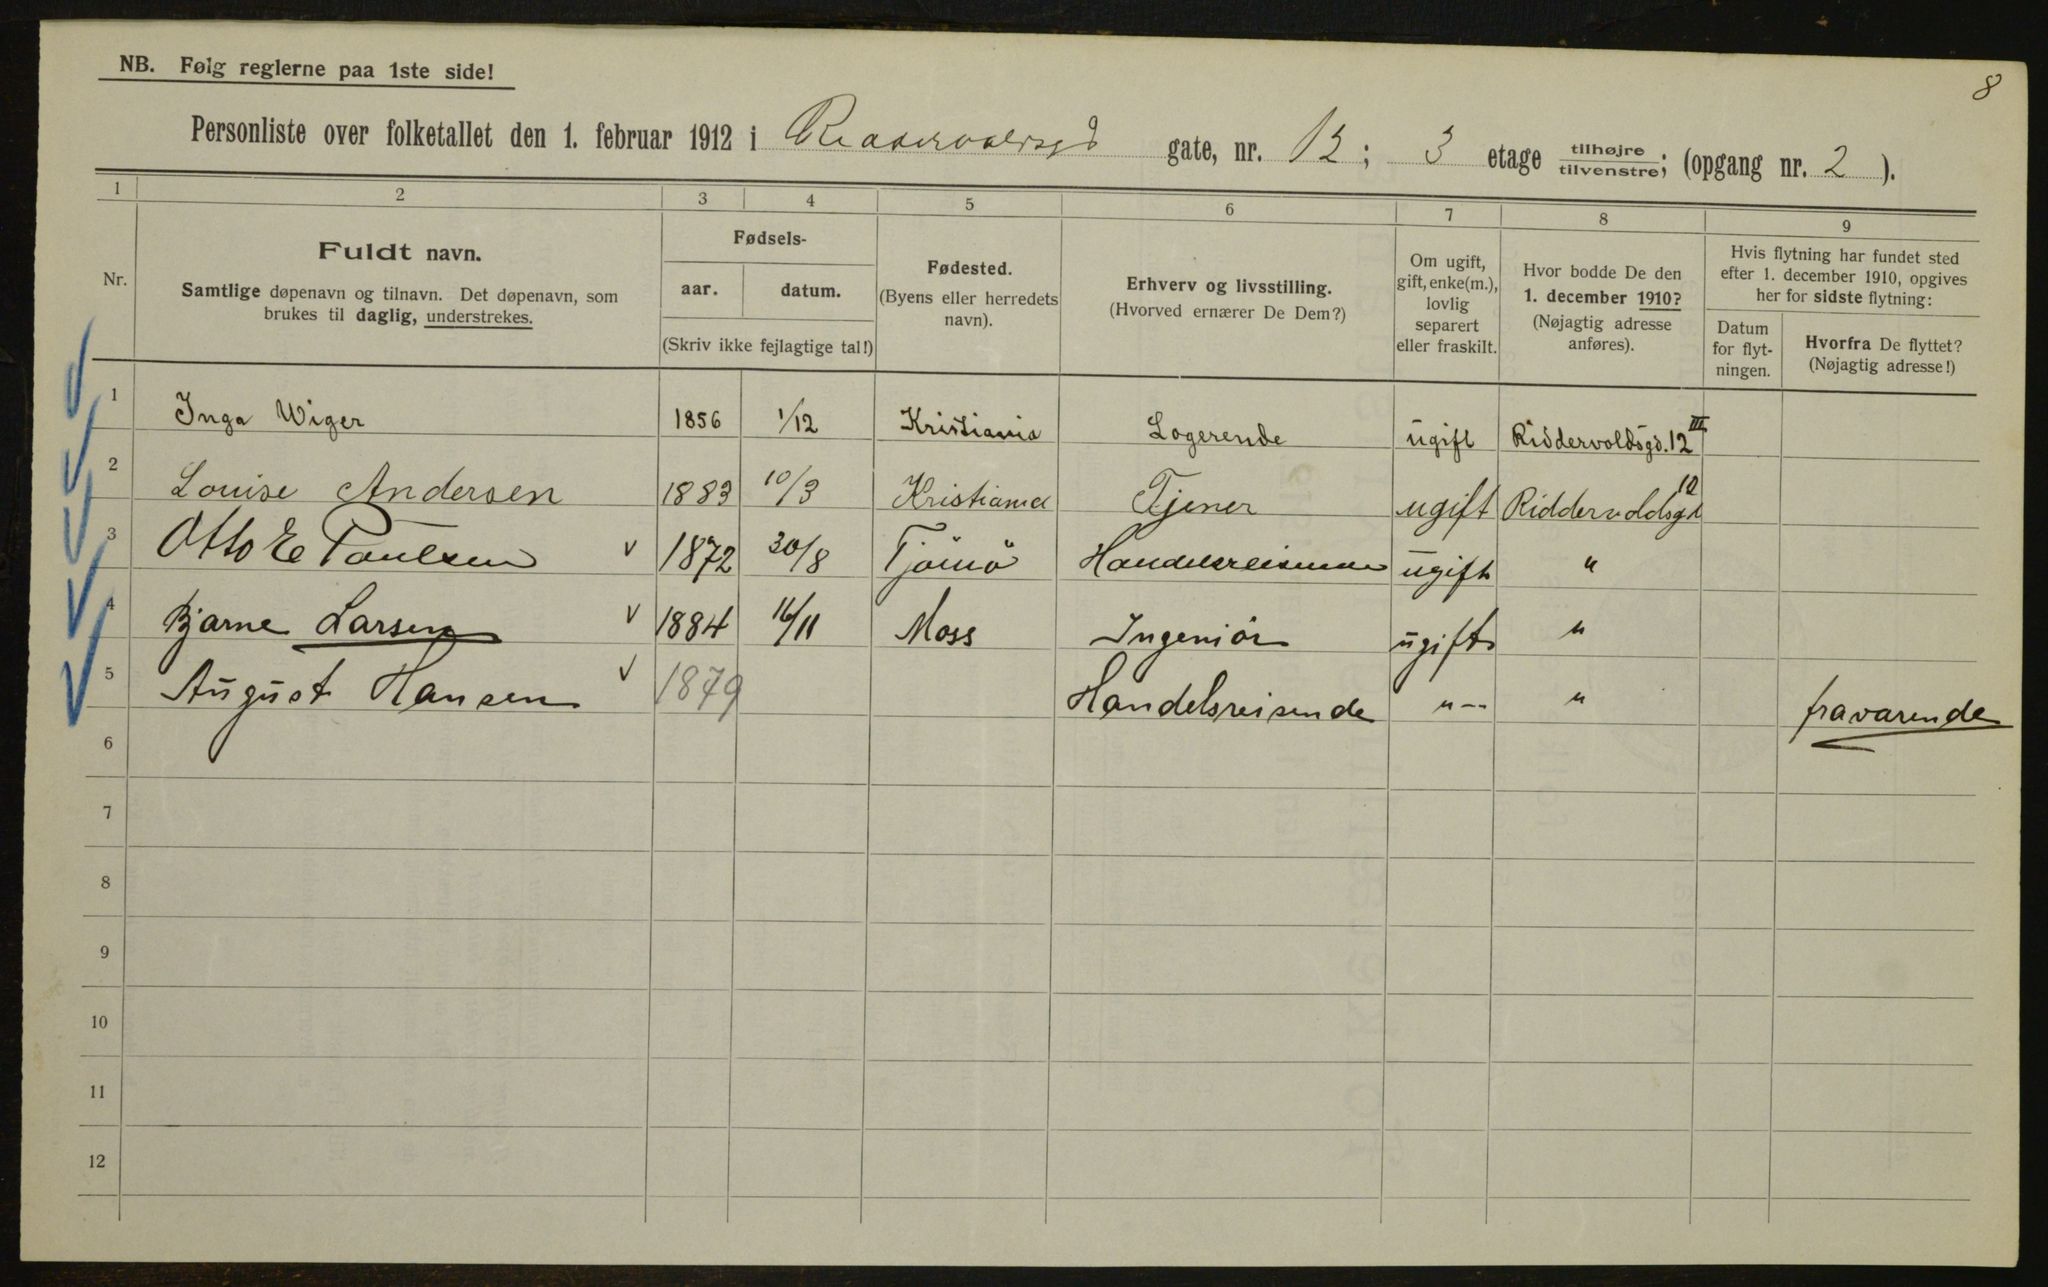 8
NB. Følg reglerne paa 1ste side!
Personliste over folketallet den 1. februar 1912 i Riddervoldsgd gate, nr. 12; 3 etage tilhøjre tilvenstre; (opgang nr. 2 ).
1 2 3 4 5 6 7 8 9
Nr.
Fuldt navn.
Samtlige døpenavn og tilnavn. Det døpenavn, som
brukes til daglig, understrekes.
Fødsels-
aar. datum.
(Skriv ikke fejlagtige tal!)
Fødested.
(Byens eller herredets
navn).
Erhverv og livsstilling.
(Hvorved ernærer De Dem?)
Om ugift,
gift, enke(m.),
lovlig
separert
eller fraskilt.
Hvor bodde De den
1. december 1910?
(Nøjagtig adresse
anføres).
Hvis flytning har fundet sted
efter 1. december 1910, opgives
her for sidste flytning:
Datum
for flyt-
ningen.
Hvorfra De flyttet?
(Nøjagtig adresse!)
1 Inga Wiger 1856 1/12 Kristiania Logerende ugift Riddervoldsgd. 12 III
2 Louise Andersen 1883 10/3 Kristiania Tjener ugift Riddervoldsgd 12
3 Otto E Paulsen v 1872 30/8 Tjömö Handelsreisende ugift "
4 Bjarne Larsen v 1884 16/11 Moss Ingeniör ugift "
5 August Hansen v 1879 Handelsreisende "-- " fravarende
6
7
8
9
10
11
12